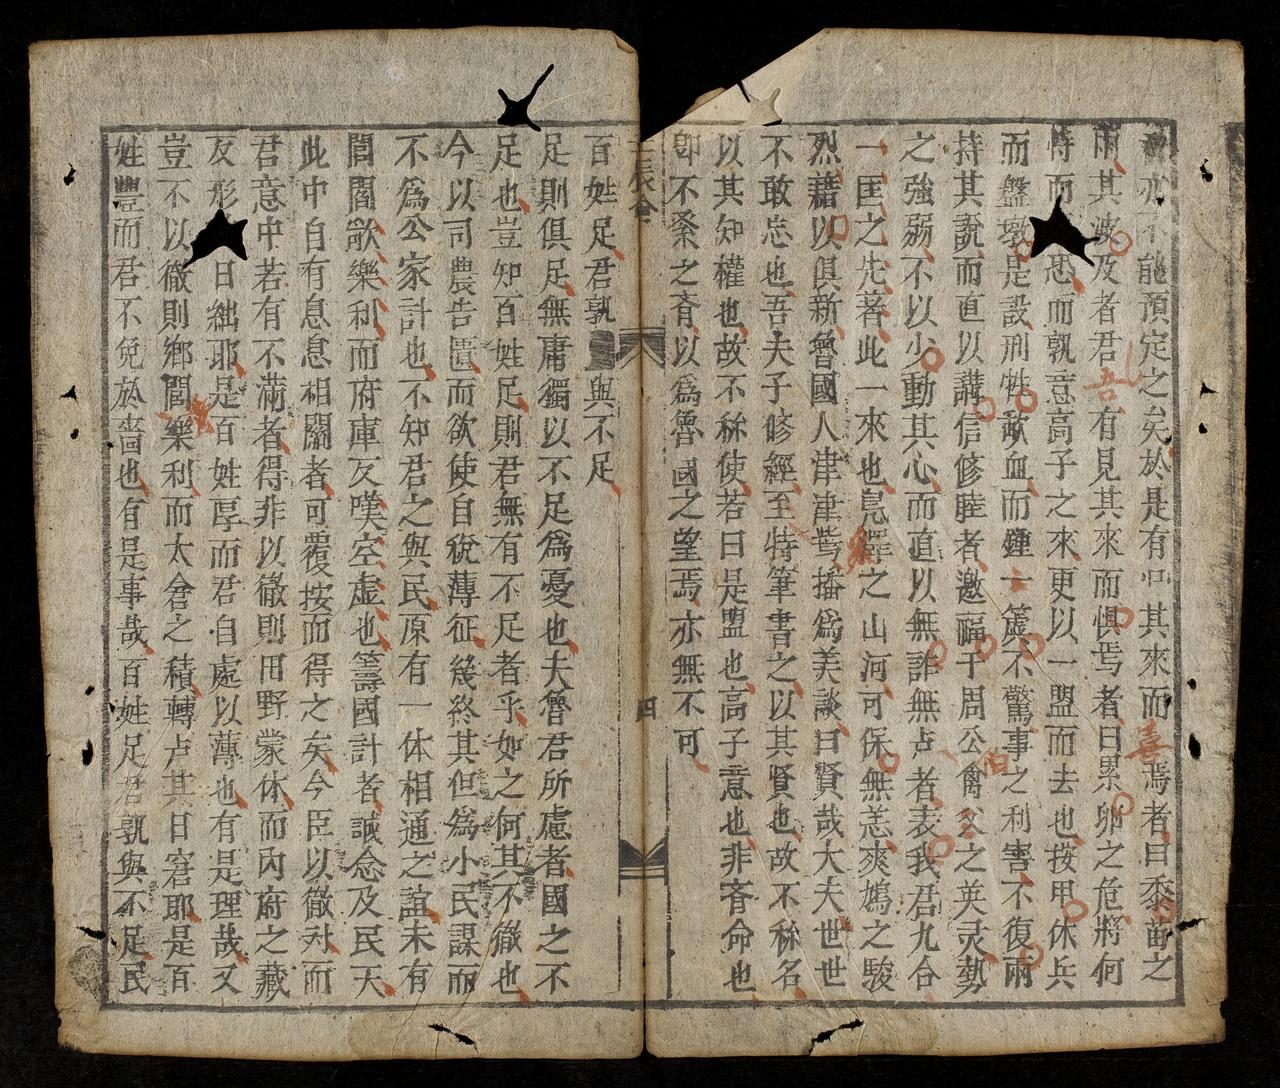 亦不能預定之矣於是有卬其來而喜焉者曰黍苗之
雨其波及者君吾有見其來而惧焉者曰累卵之危將何
恃而恐而孰意高子之來更以一盟而去也按甲休兵
而盤墩是設刑牲歃血而鍾一簴不驚事之利害不復兩
持其說而直以講信修睦者邀福于周公禽父之英灵勢
之強弱不以少動其心而直以無詐無占者表我君九合
一匡之先者此一來也息繹之山河可保無恙爽鳩之駿
烈藉以俱新魯國人津津焉播為美談曰賢哉大夫世世
不敢忘也吾夫子修經至特筆書之以其賢也故不稱名
以其知權也故不稱使若曰是盟也高子意也非斉命也
即不桼之斉以為魯國之望焉亦無不可
四
百姓足君孰與不足
足則俱足無庸獨以不足為憂也夫魯君所慮者國之不
足也豈知百姓足則君無有不足者乎如之何其不徹也
今以司農告匱而欲使自稅薄征幾終其但為小民謀而
不為公家計也不知君之與民原有一体相通之誼未有
閭閻歌樂利而府庫反嘆空虛也籌國計者誠念及民天
此中自有息息相關者可覆按而得之矣今臣以徹对而
君意中若有不滿者得非以徹則田野蒙休而內府之藏
反形日絀耶是百姓厚而君自處以薄也有是理哉又
豈不以徹則鄉閭樂利而太倉之積轉卢其日窘耶是百
姓豐而君不免於嗇也有是事哉百姓足君孰與不足民